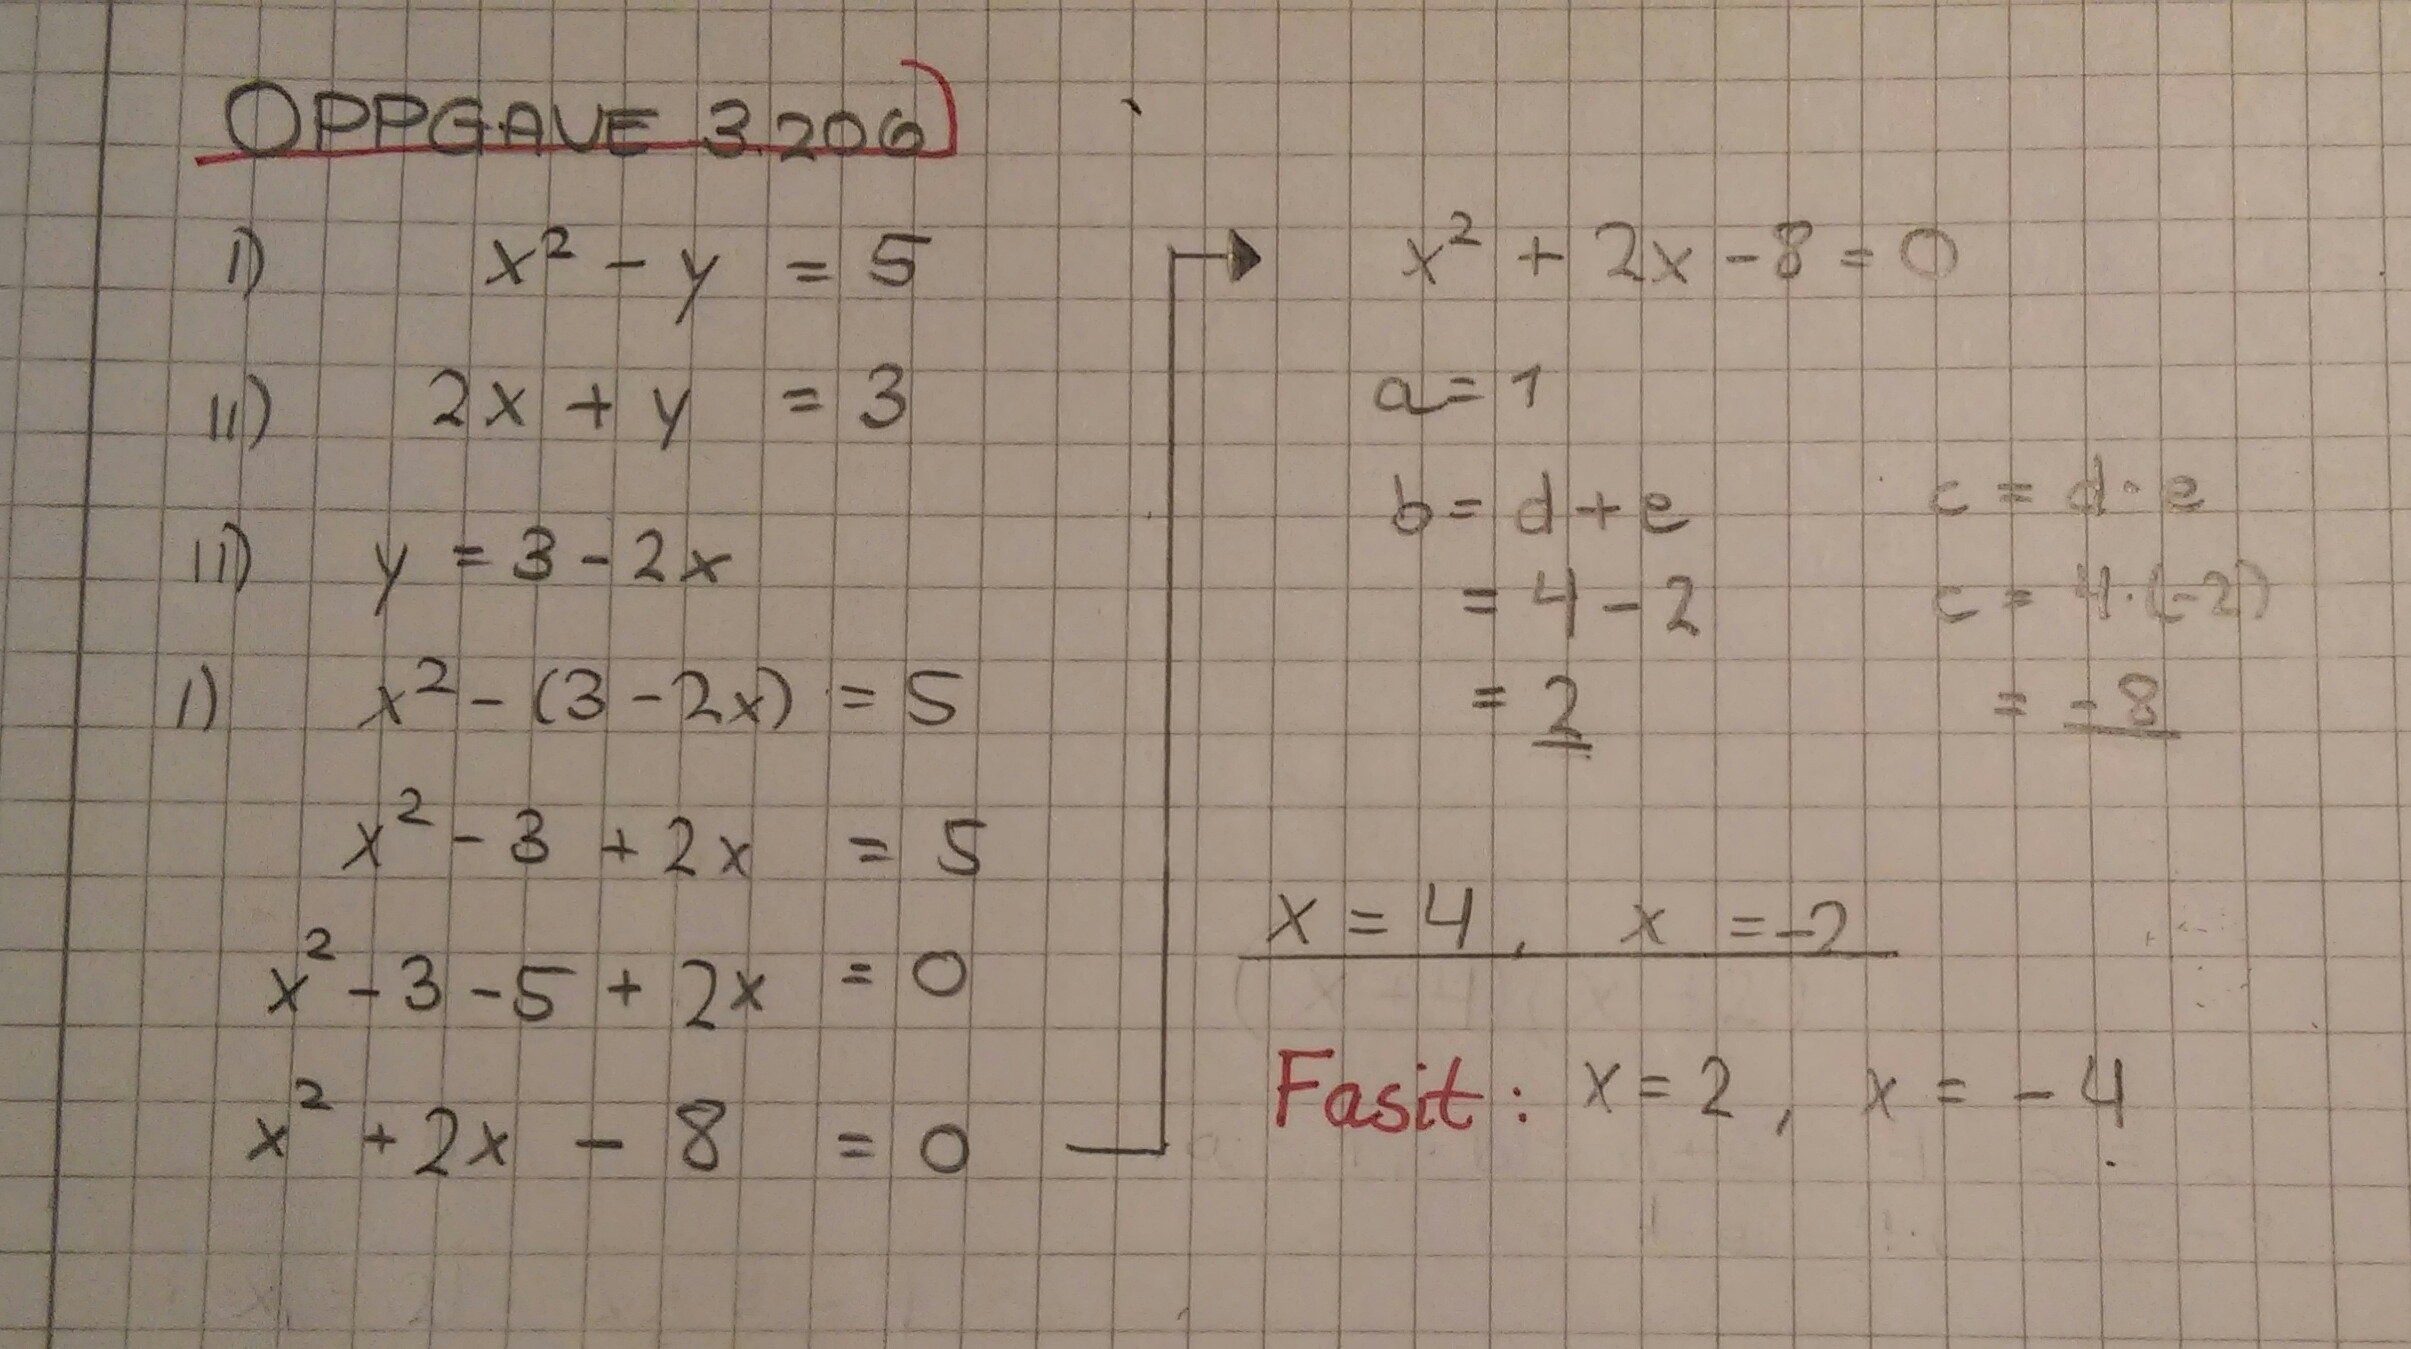 OPPGAVE 3.206)
I) x² - y = 5
II) 2x + y = 3
III) y = 3 - 2x
I) x² - (3 - 2x) = 5
x² - 3 + 2x = 5
x² - 3 - 5 + 2x = 0
x² + 2x - 8 = 0
x² + 2x - 8 = 0
a = 1
b = d + e
= 4 - 2
= 2
c = d · e
c = 4 · (-2)
= -8
x = 4, x = -2
Fasit: x = 2, x = -4